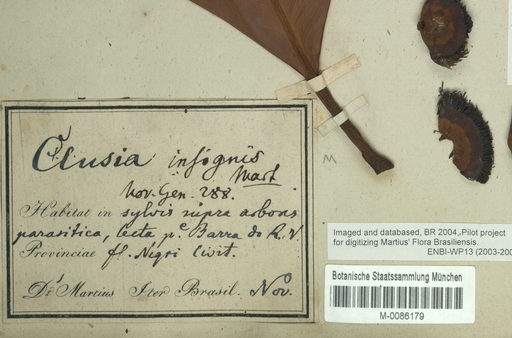 Clusia insignis
Mart
Nov. Gen. 288.
Habitat in sylvis supra arbores
parasitica, lecta pe. Barra do R. N.
Provinciae fl. Nigri Civit.
Dr. Martius Iter Brasil. Nov.
M
Imaged and databased, BR 2004, Pilot project
for digitizing Martius' Flora Brasiliensis.
ENBI-WP13 (2003-200
Botanische Staatssammlung München
M-0086179